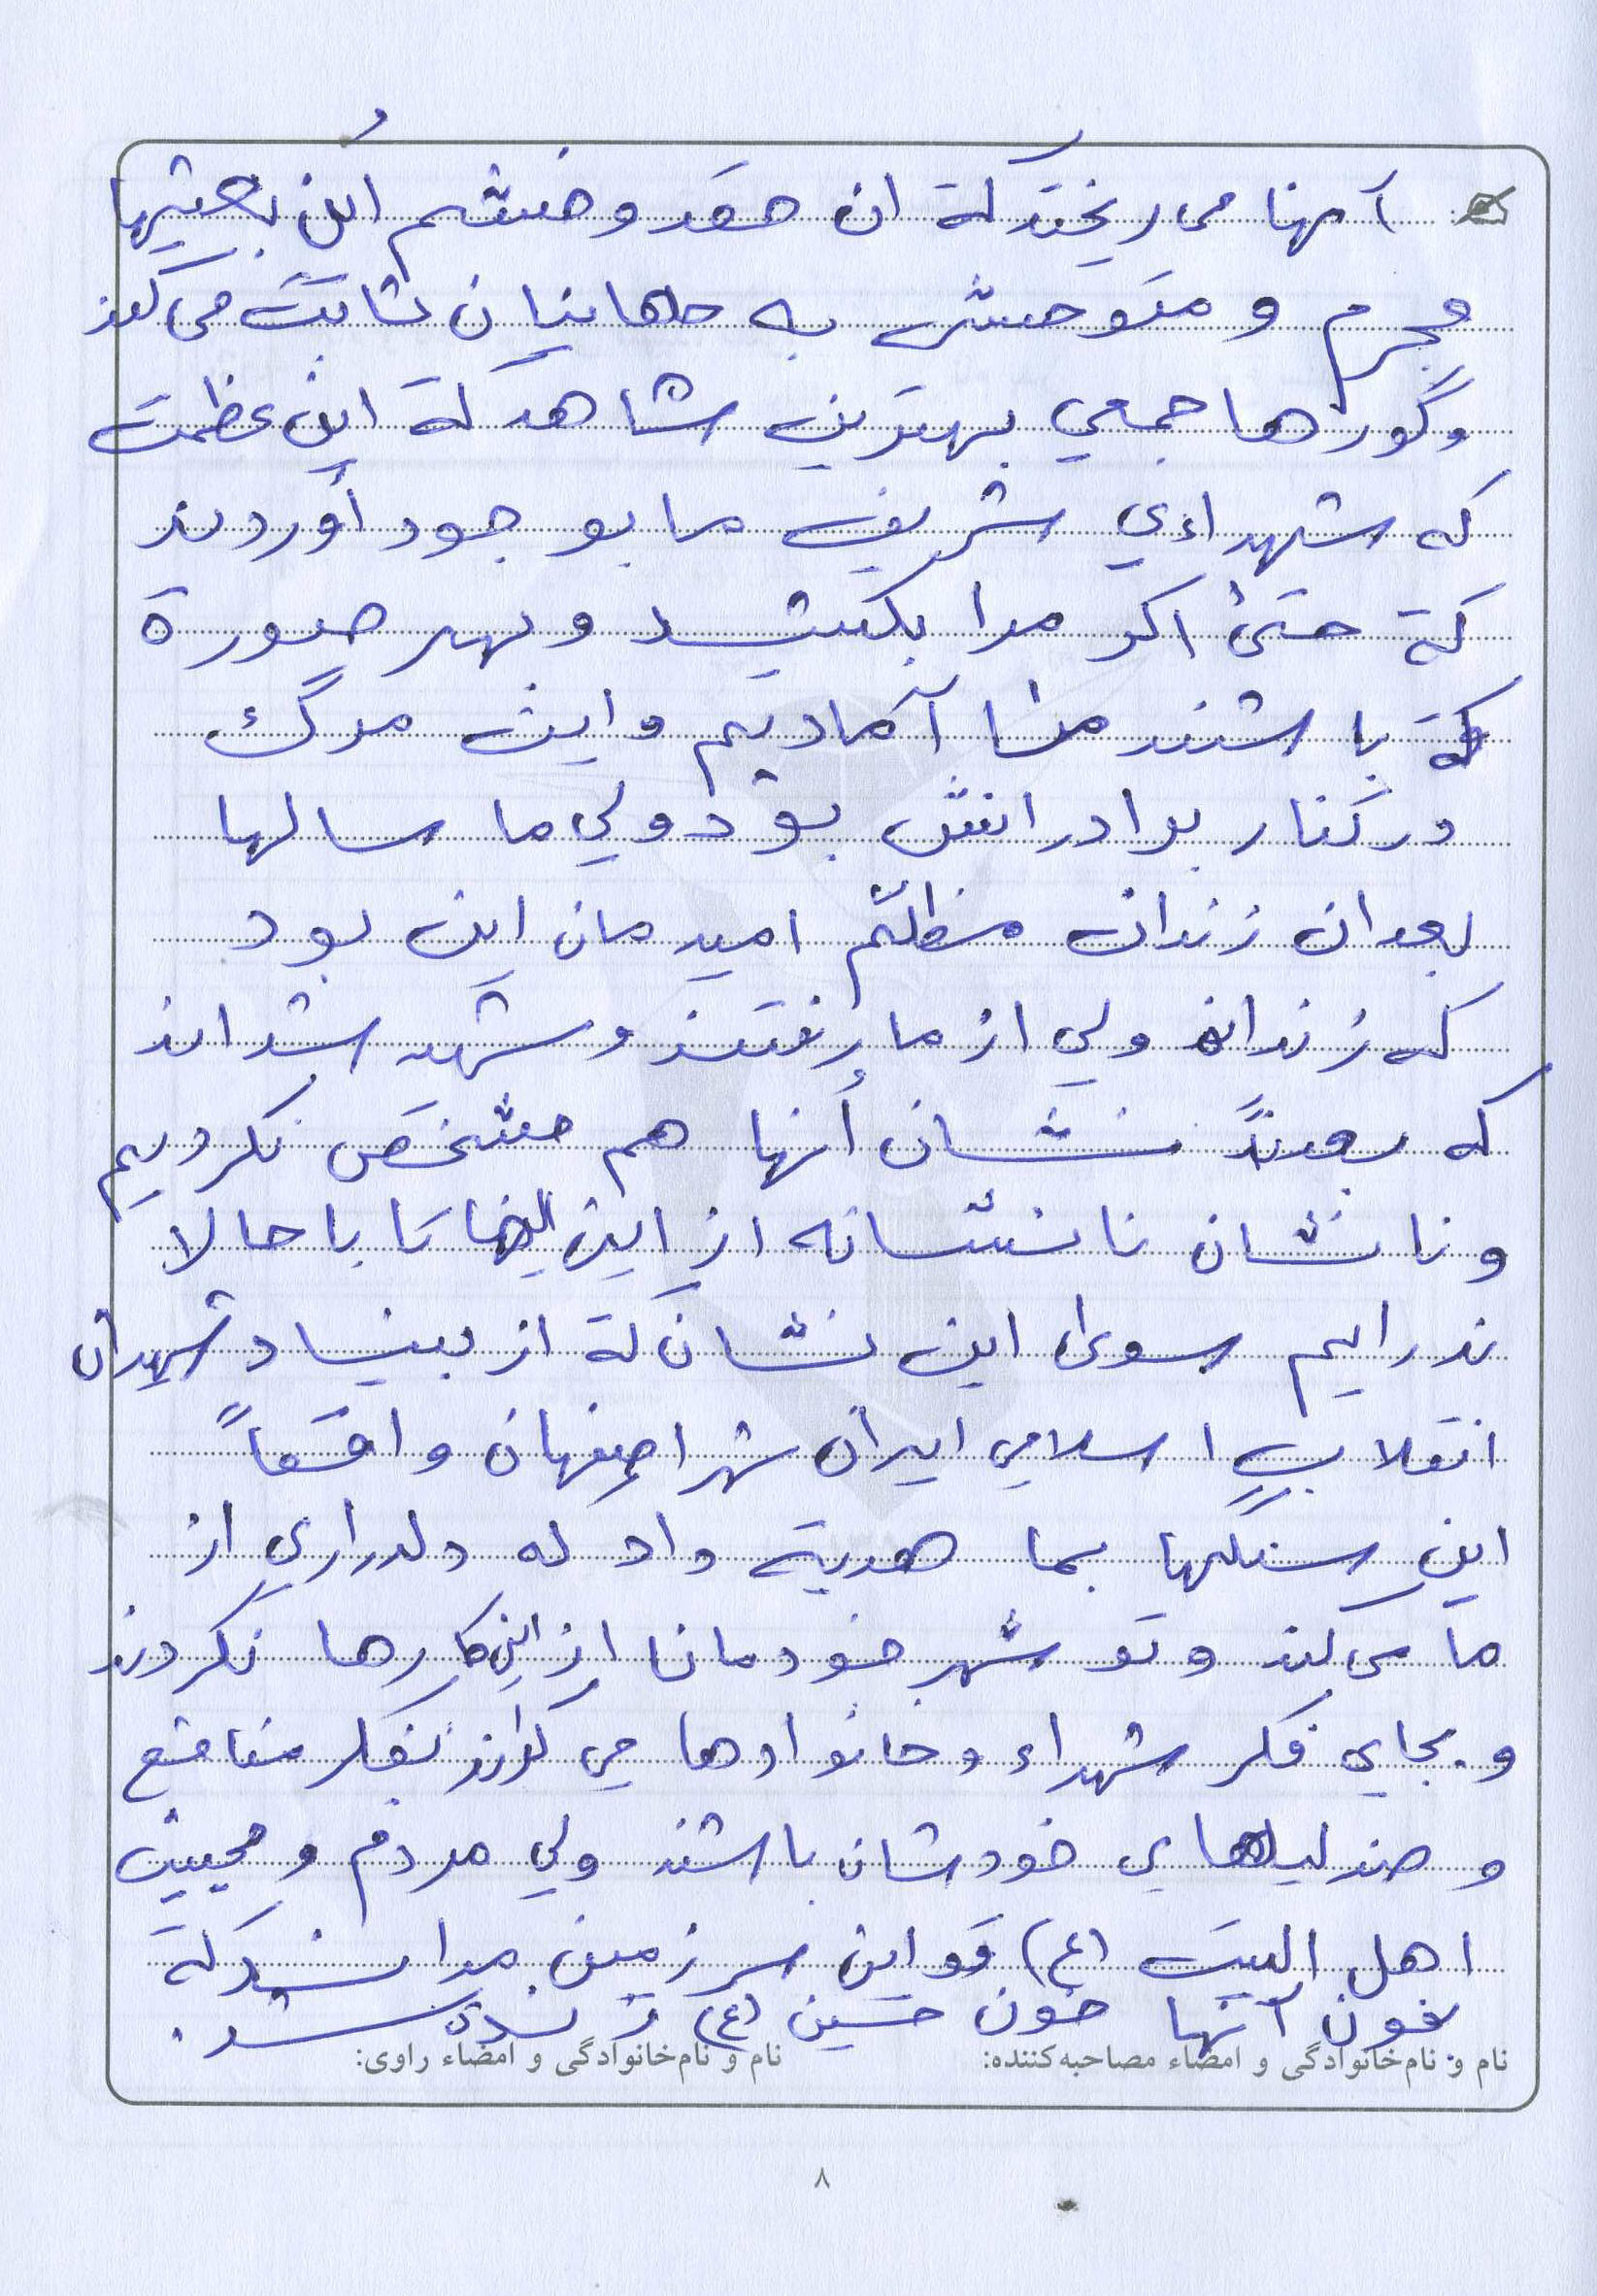 آنها می ریختند کة ان حقد و خشم این بعثیها
مجرم و متوحش به جاهانیان ثابت می کند
وگورها جمعي بهترین شاهد کة این عظمت
که شهداءي شریف ما بوجود آوردند
کة حتی اگر مرا بکشید و بهر صورة
کة باشند ما آمادیم و این مرگ
در کنار برادرانش بود ولي ما سالها
بعد ان زندان مظلم امید مان این بود
که زندان ولي از ما رفتند و شهید شداند
که بعداً نشان أنها هم مشخص نکردیم
و نا نشان نا نشانه از این الیها تا با حالا
ندرایم سوی این نشان کة از بنیاد شهدان
انقلاب اسلامي ایران شهر اصفهان واقعاً
این سنگها بما هدیة داد که دلداري از
ما می کند و تو شهر خودمانا از این کارها نکردند
و بجاي فکر شهداء و خانوادها می کوارند بفکر منافع
و صندلیهاي خودشان باشند ولي مردم و محبین
اهل البیت (ع) تو این سرزمین مداسند کة
بخون آنها خون حسین (ع) زنده شد.
نام و نام‌خانوادگی و امضاء مصاحبه‌کننده: نام و نام‌خانوادگی و امضاء راوی:
۸